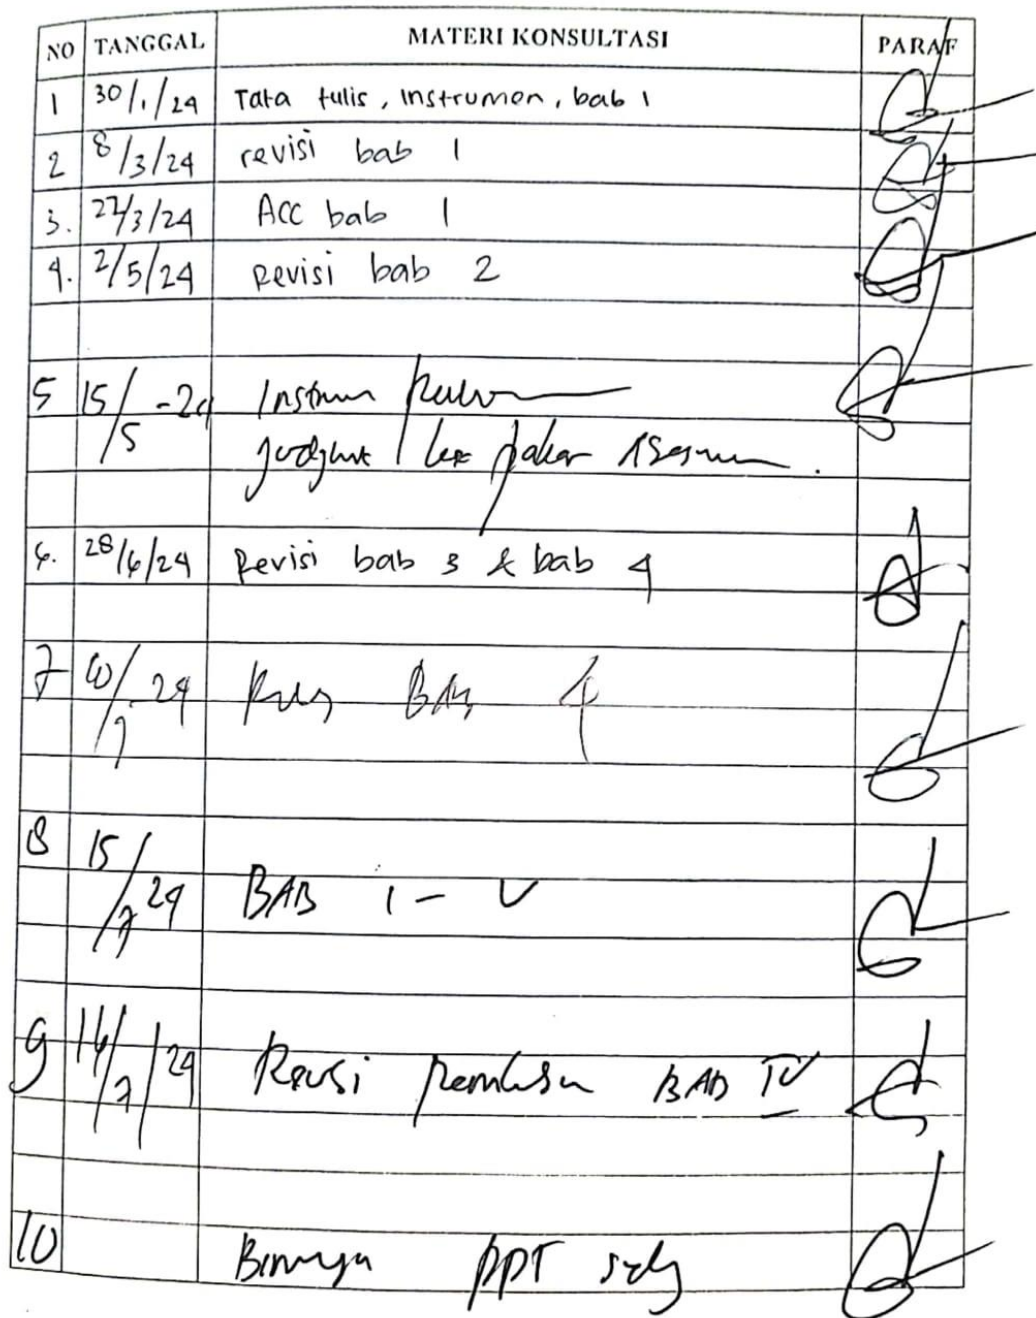 NO TANGGAL MATERI KONSULTASI PARAF
1 30/1/24 Tata tulis, instrumen, bab 1
2 8/3/24 revisi bab 1
3. 27/3/24 Acc bab 1
4. 2/5/24 Revisi bab 2
5 15/5-24 Instrum
judgment / ke pakar asesmen.
6. 28/6/24 Revisi bab 3 & bab 4
7 10/7 24 BAB 4
8 15/7 24 BAB I - V
9 16/7/24 Revisi BAB IV
10 PPT